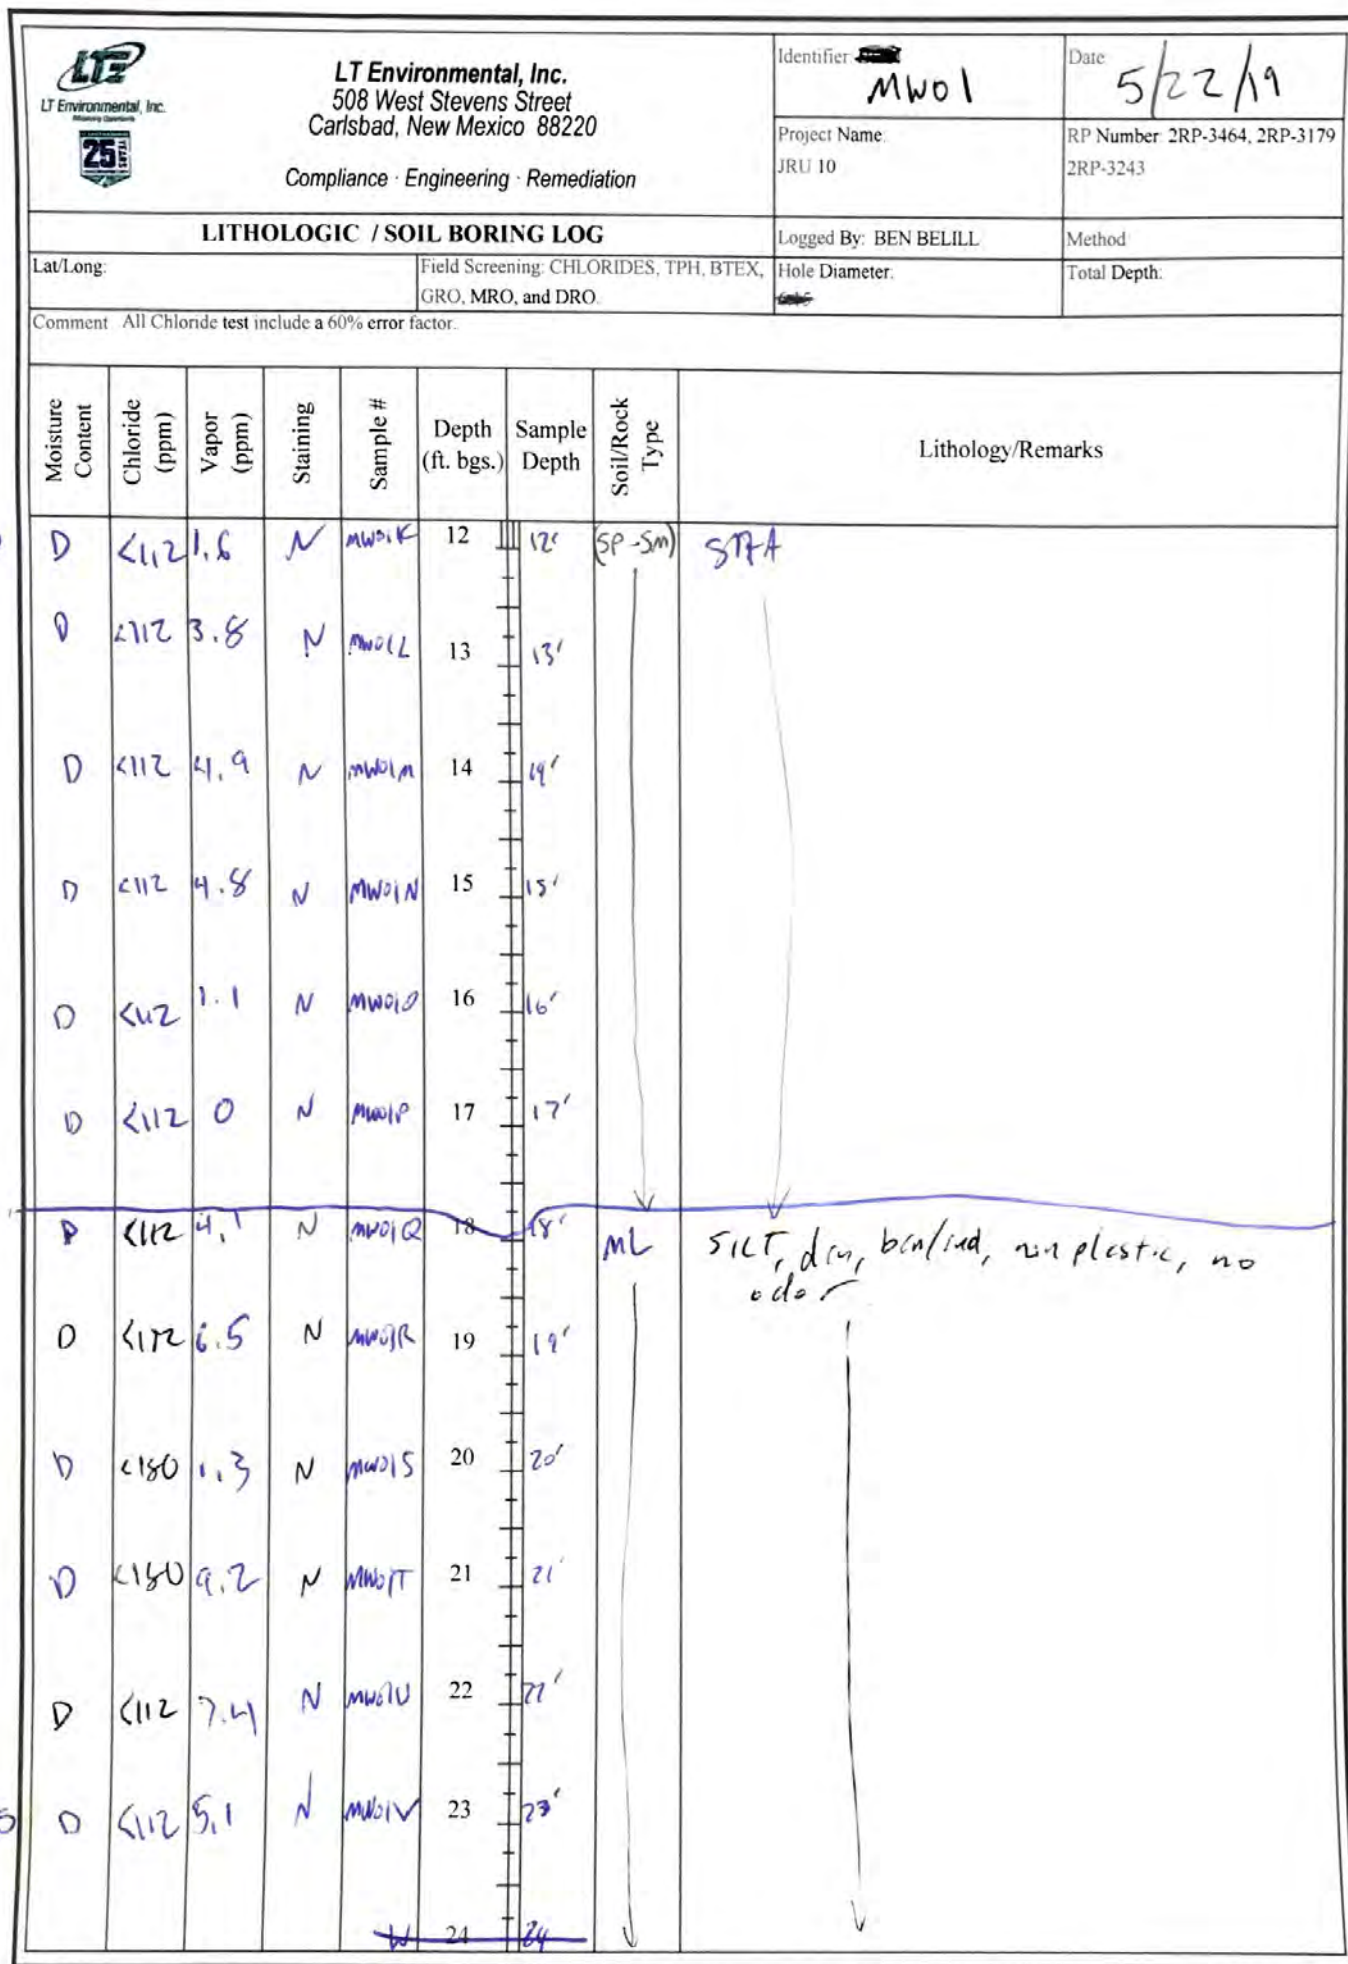 LTE
LT Environmental, Inc.
25 YEARS
LT Environmental, Inc.
508 West Stevens Street
Carlsbad, New Mexico 88220
Compliance · Engineering · Remediation
Identifier: MW01
Date 5/22/19
Project Name:
JRU 10
RP Number: 2RP-3464, 2RP-3179
2RP-3243
LITHOLOGIC / SOIL BORING LOG
Logged By: BEN BELILL
Method
Lat/Long:
Field Screening: CHLORIDES, TPH, BTEX,
GRO, MRO, and DRO.
Hole Diameter:
Total Depth:
Comment All Chloride test include a 60% error factor.
Moisture Content Chloride (ppm) Vapor (ppm) Staining Sample # Depth (ft. bgs.) Sample Depth Soil/Rock Type Lithology/Remarks
D <112 1.6 N MW01K 12 12' (SP-SM) STAA
D <112 3.8 N MW01L 13 13'
D <112 4.9 N MW01M 14 14'
D <112 4.8 N MW01N 15 15'
D <112 1.1 N MW01O 16 16'
D <112 0 N MW01P 17 17'
D <112 4.1 N MW01Q 18 18' ML SILT, dry, brn/red, non plastic, no
odor
D <112 6.5 N MW01R 19 19'
D <180 1.3 N MW01S 20 20'
D <180 9.2 N MW01T 21 21'
D <112 7.4 N MW01U 22 22'
D <112 5.1 N MW01V 23 23'
W 24 24